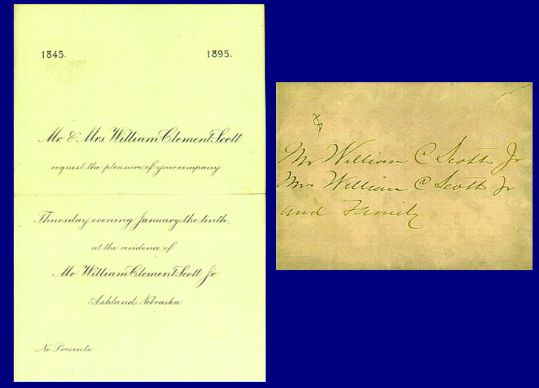 1845. 1895.
Mr & Mrs William Clement Scott
request the pleasure of your company
Thursday evening January the tenth,
at the residence of
Mr William Clement Scott Jr
Ashland, Nebraska
No Presents.
Mr William C Scott Jr
Mrs William C Scott Jr
and Family